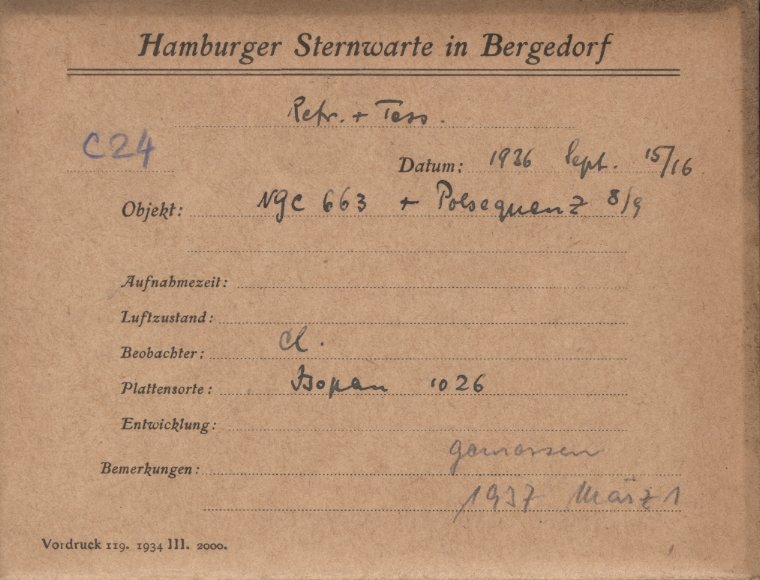 Hamburger Sternwarte in Bergedorf
Refr. + Tess.
C24
Datum: 1936 Sept. 15/16
Objekt: NGC 663 + Polsequenz 8/9
Aufnahmezeit:
Luftzustand:
Beobachter:
Plattensorte: Isopan 1026
Entwicklung:
gemessen
Bemerkungen:
1937 März 1
Vordruck 119. 1934 III. 2000.